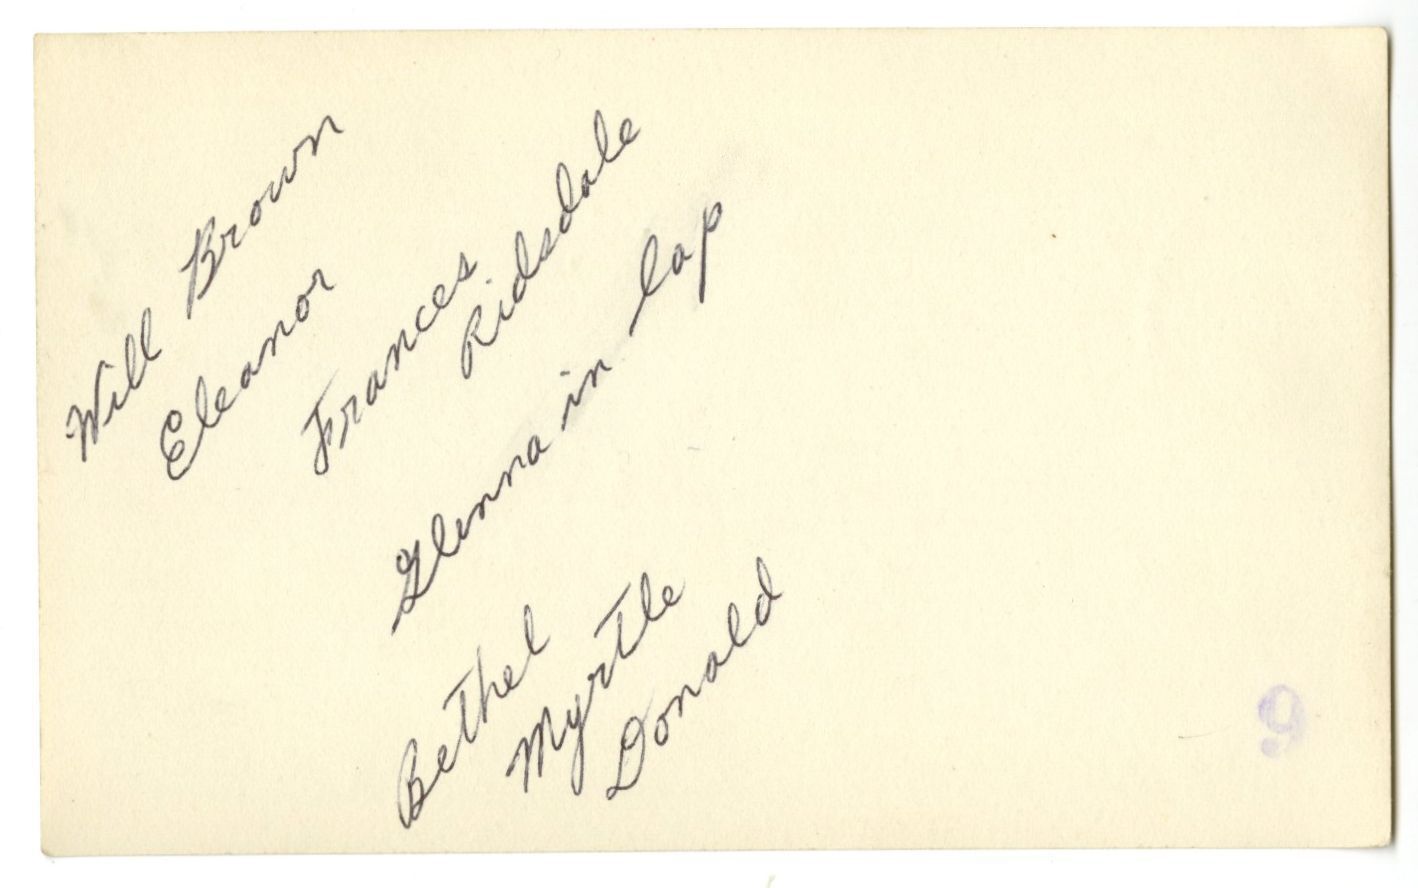 Will Brown
Eleanor
Frances
Ridsdale
Glenna in lap
Bethel
Myrtle
Donald
9